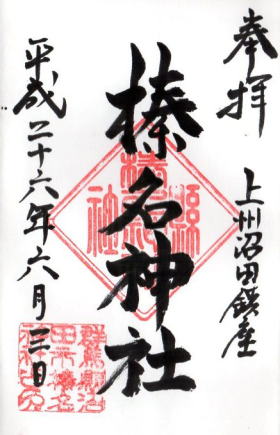 奉拝
上州沼田鎮座
榛名神社
平成二十六年六月三日